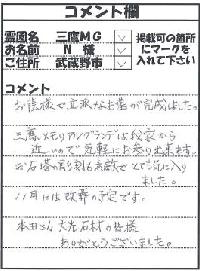 コメント欄
霊園名 三鷹MG ✓
お名前 N 様 ✓
ご住所 武蔵野市 ✓
掲載可の箇所
にマークを
入れて下さい
コメント
お陰様で立派なお墓が完成しました。
三鷹メモリアルグランデは我家から
近いので気軽にお参り出来ます。
お石塔の彫刻も素敵でとても気に入り
ました。
11月には改葬の予定です。
本田さん 大光石材の皆様
ありがとうございました。